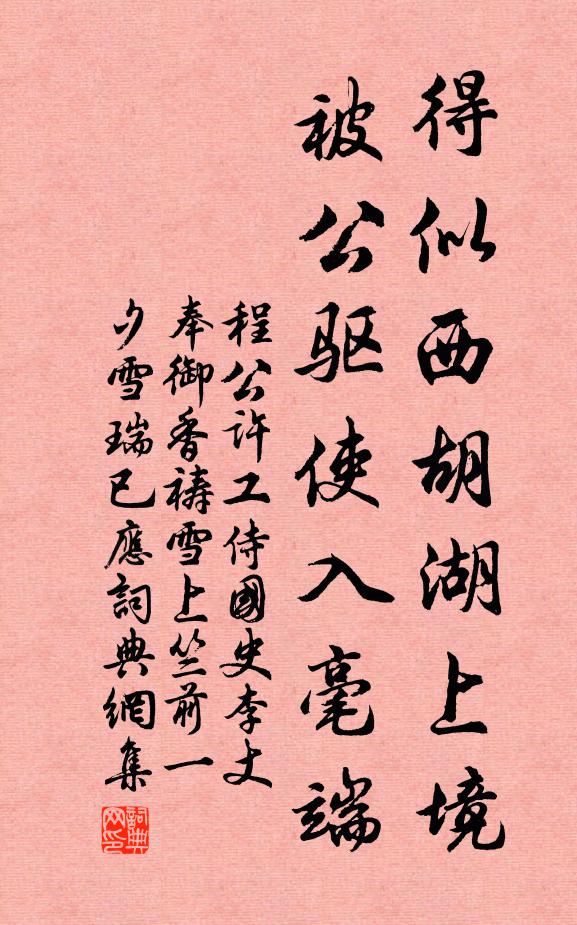 得似西胡湖上境
被公驱使入毫端
程公许工侍國史李丈
奉御香祷雪上竺前一
夕雪瑞已應詞典網集
詞典网印